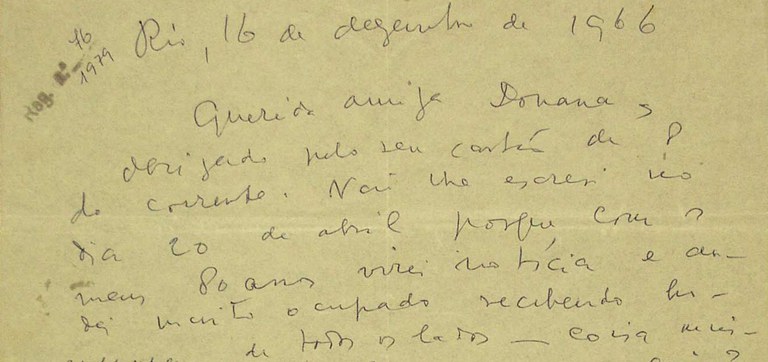 Reg. nº 76
1979
Rio, 16 de dezembro de 1966
Querida amiga Donana,
obrigado pelo seu cartão de 8
do corrente. Não lhe escrevi no
dia 20 de abril porque com os
meus 80 anos virei notícia e an-
dei muito ocupado recebendo ho-
de todos os lados — coisa